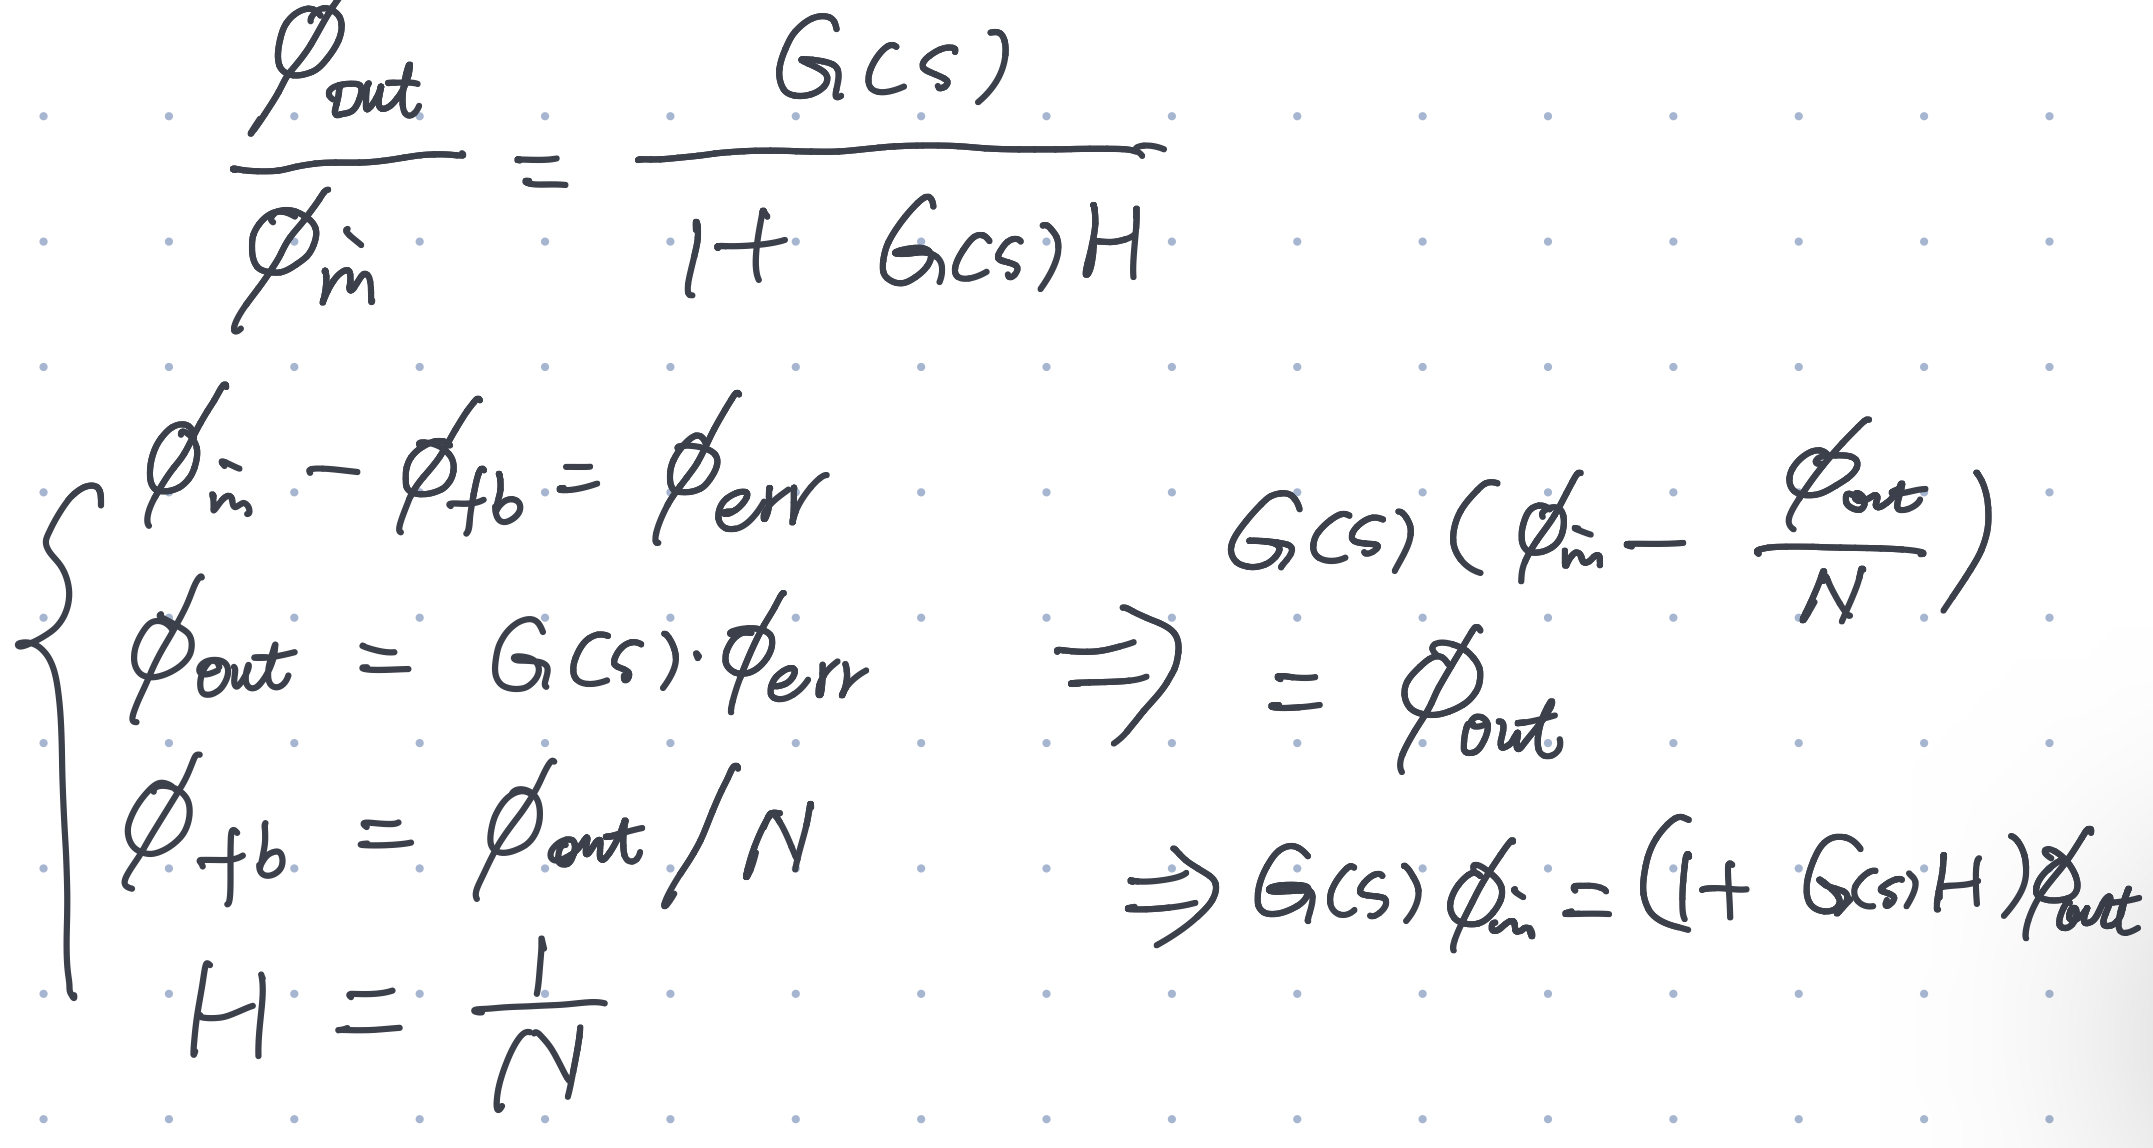 ϕout / ϕin = G(s) / (1 + G(s)H)
ϕin − ϕfb = ϕerr
ϕout = G(s)·ϕerr
ϕfb = ϕout / N
H = 1/N
⇒ G(s)(ϕin − ϕout/N)
= ϕout
⇒ G(s)ϕin = (1 + G(s)H)ϕout